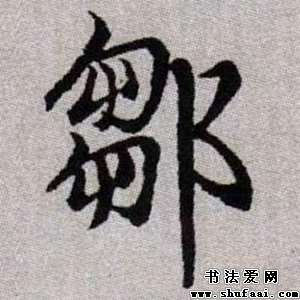 鄒
书法爱网
www.shufaai.com